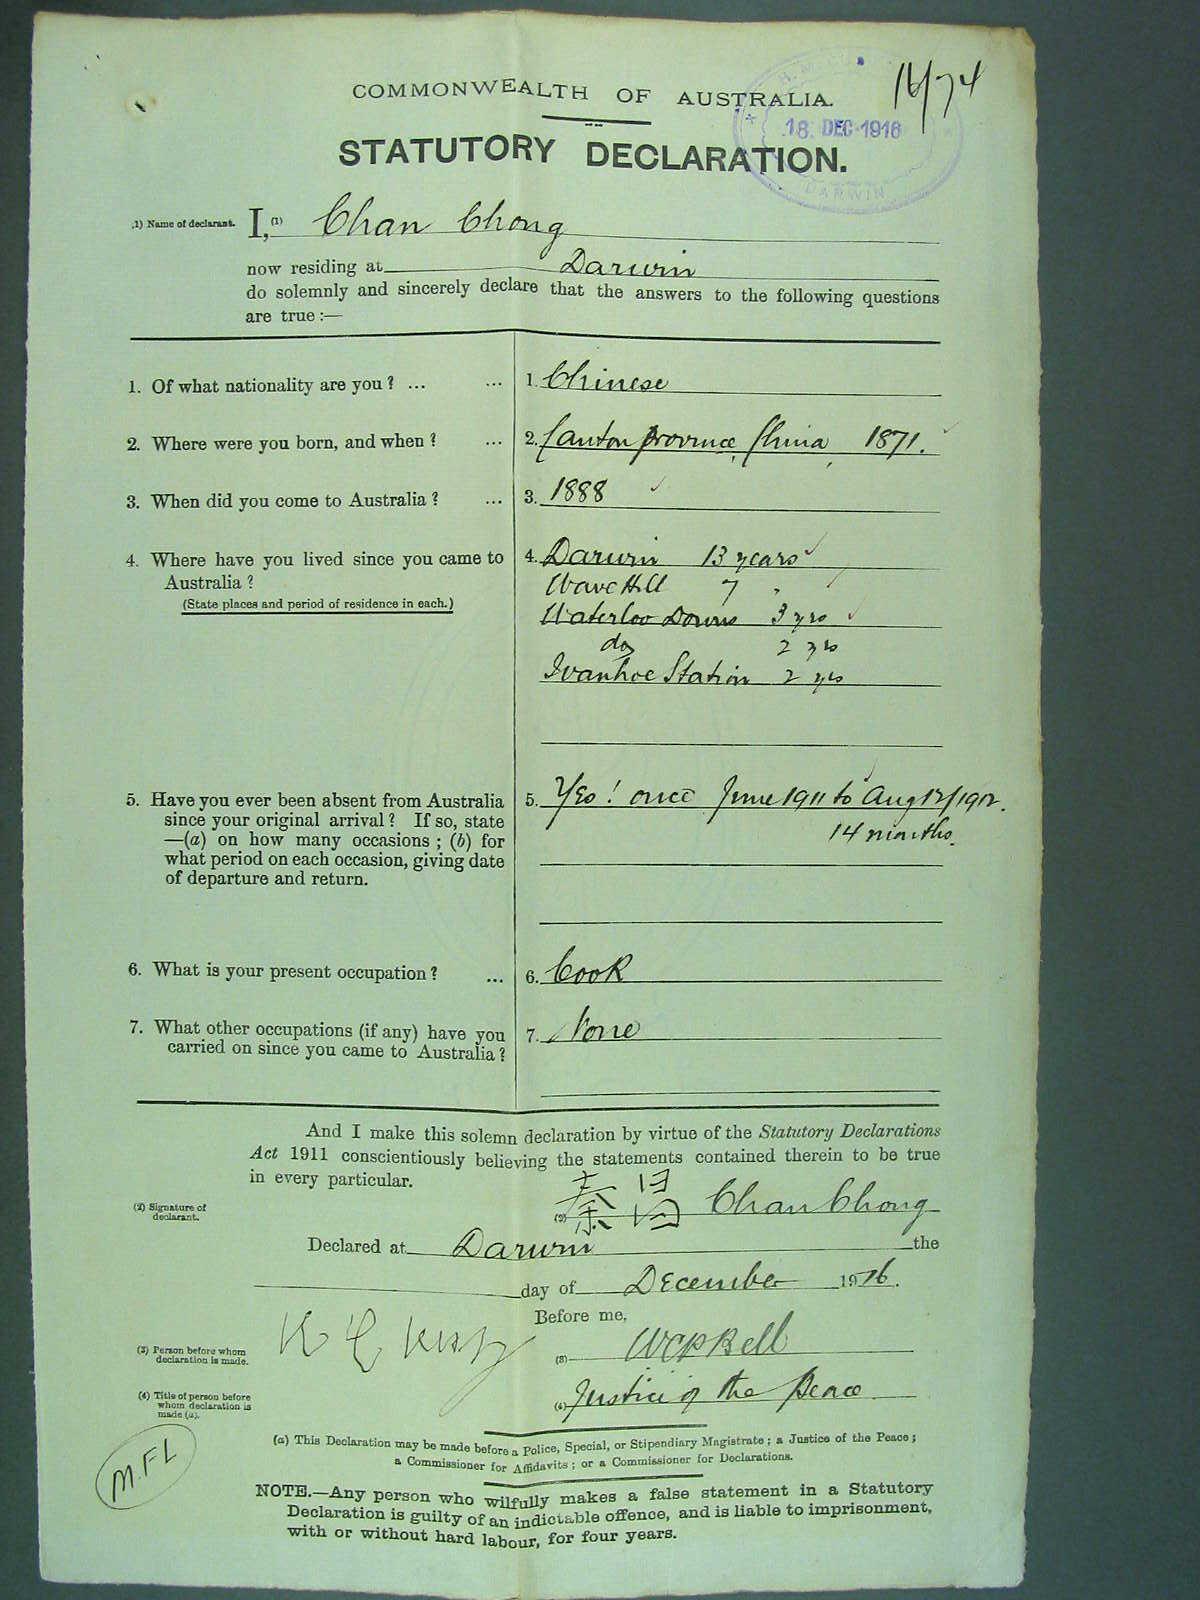 16/74
COMMONWEALTH OF AUSTRALIA.
H. M. CU
18. DEC. 1916
DARWIN
STATUTORY DECLARATION.
(1) Name of declarant. I, (1) Chan Chong
now residing at Darwin
do solemnly and sincerely declare that the answers to the following questions
are true :—
1. Of what nationality are you ? ... ... 1. Chinese
2. Where were you born, and when ? ... 2. Canton province, China, 1871.
3. When did you come to Australia ? ... 3. 1888
4. Where have you lived since you came to 4. Darwin 13 years
Australia ? Wave Hill 7 "
(State places and period of residence in each.) Waterloo Downs 3 yrs
do 2 yrs
Ivanhoe Station 2 yrs
5. Have you ever been absent from Australia 5. Yes ! once June 1911 to Aug 12/1912.
since your original arrival ? If so, state
14 months.
—(a) on how many occasions ; (b) for
what period on each occasion, giving date
of departure and return.
6. What is your present occupation ? ... 6. Cook
7. What other occupations (if any) have you 7. None
carried on since you came to Australia ?
And I make this solemn declaration by virtue of the Statutory Declarations
Act 1911 conscientiously believing the statements contained therein to be true
in every particular.
(2) Signature of
declarant. (2) 秦 Chan Chong
Declared at Darwin the
day of December 1916.
Before me,
(3) Person before whom
declaration is made. (3) Bell
(4) Title of person before
whom declaration is
made (a). (4) Justice of the Peace
(a) This Declaration may be made before a Police, Special, or Stipendiary Magistrate ; a Justice of the Peace ;
a Commissioner for Affidavits ; or a Commissioner for Declarations.
M.F.L
NOTE.—Any person who wilfully makes a false statement in a Statutory
Declaration is guilty of an indictable offence, and is liable to imprisonment,
with or without hard labour, for four years.